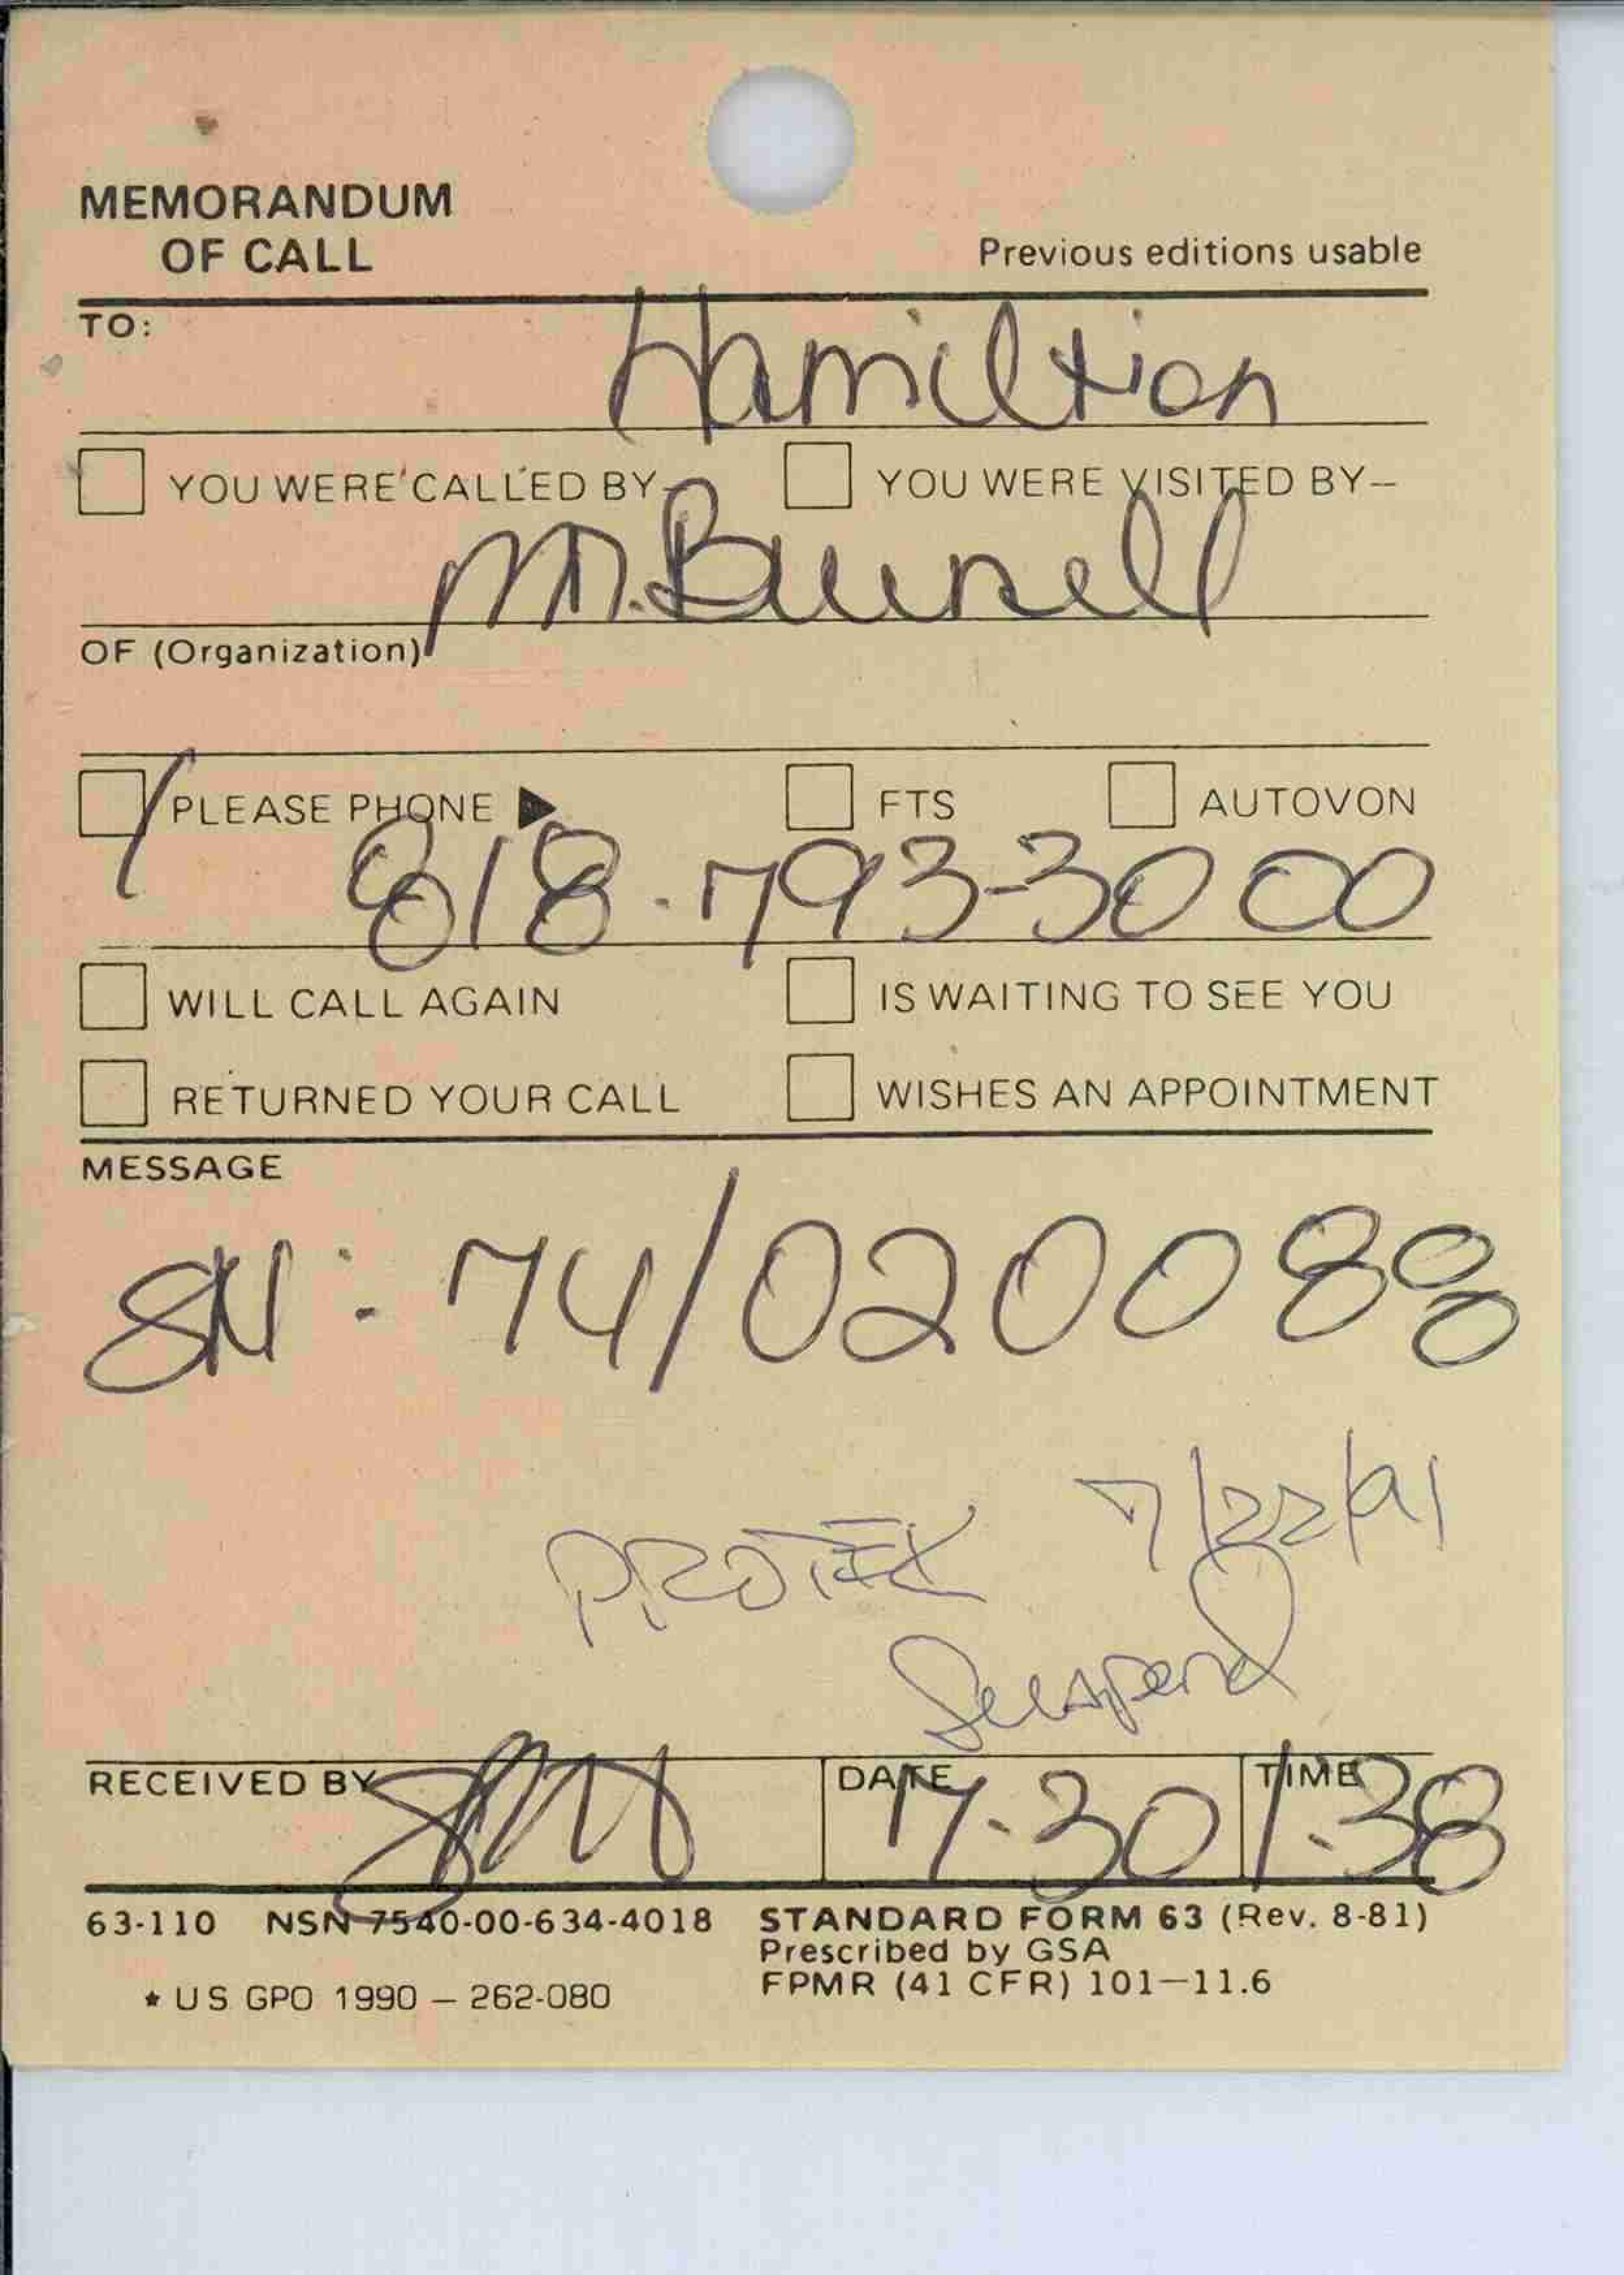 MEMORANDUM
OF CALL
Previous editions usable
TO:
Hamiltion
YOU WERE CALLED BY— YOU WERE VISITED BY—
OF (Organization)
PLEASE PHONE ▶ FTS AUTOVON
818-793-3000
WILL CALL AGAIN IS WAITING TO SEE YOU
RETURNED YOUR CALL WISHES AN APPOINTMENT
MESSAGE
SN: 74/020088
7/22/91
PROTEK
Suspend
RECEIVED BY DATE TIME
7-30 1:38
63-110 NSN 7540-00-634-4018 STANDARD FORM 63 (Rev. 8-81)
Prescribed by GSA
* US GPO 1990 – 262-080 FPMR (41 CFR) 101–11.6